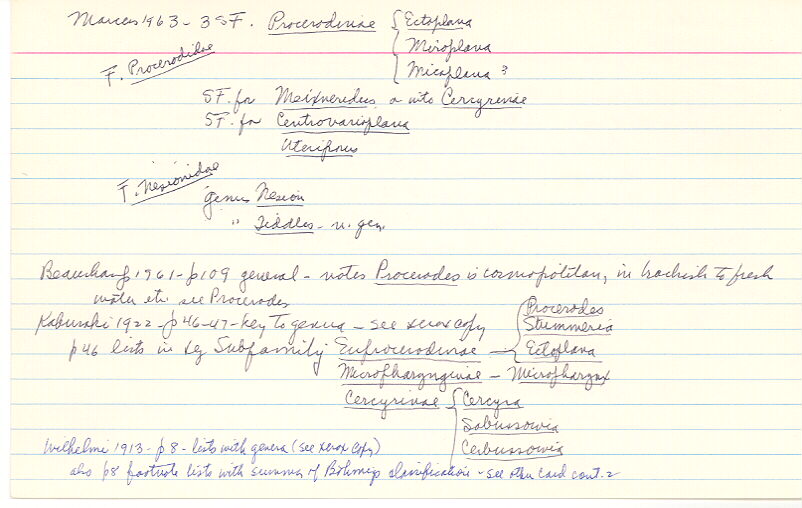 Marcus 1963 - 3 SF. Procerodinae { Ectoplana
Miroplana
F. Procerodidae
Micaplana ?
SF. for Meixnerides or into Cercyrinae
SF. for Centrovarioplana
Uteriporus
F. Nesionidae
genus Nesion
" Tiddles - n. gen.
Beauchamp 1961 - p109 general - notes Procerodes is cosmopolitan, in brackish to fresh
water etc see Procerodes
Kaburaki 1922 - p46-47 - key to genera - see xerox copy
{ Procerodes
Stummeria
p46 lists in key Subfamily Euprocerodinae — Ectoplana
Micropharynginae - Micropharynx
Cercyrinae { Cercyra
Sabussowia
Cerbussowia
Wilhelmi 1913 - p8 - lists with genera (see xerox copy)
also p8 footnote lists with summary of Böhmig's classification - see other card cont. 2